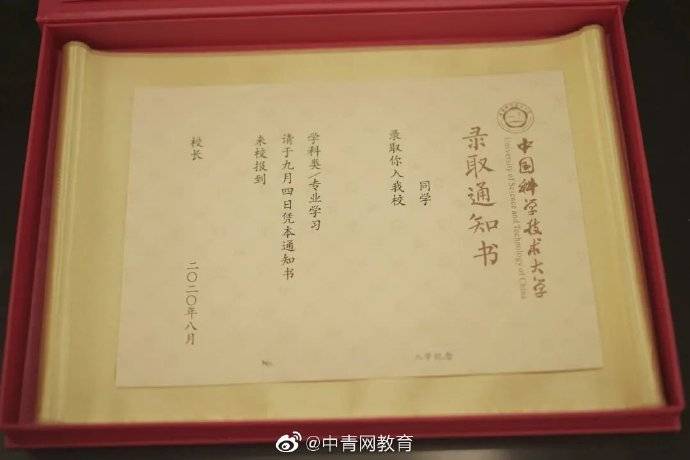 中国科学技术大学
University of Science and Technology of China
录取通知书
同学
录取你入我校
学科类/专业学习
请于九月四日凭本通知书
来校报到
校长
二〇二〇年八月
No.
入学纪念
@中青网教育